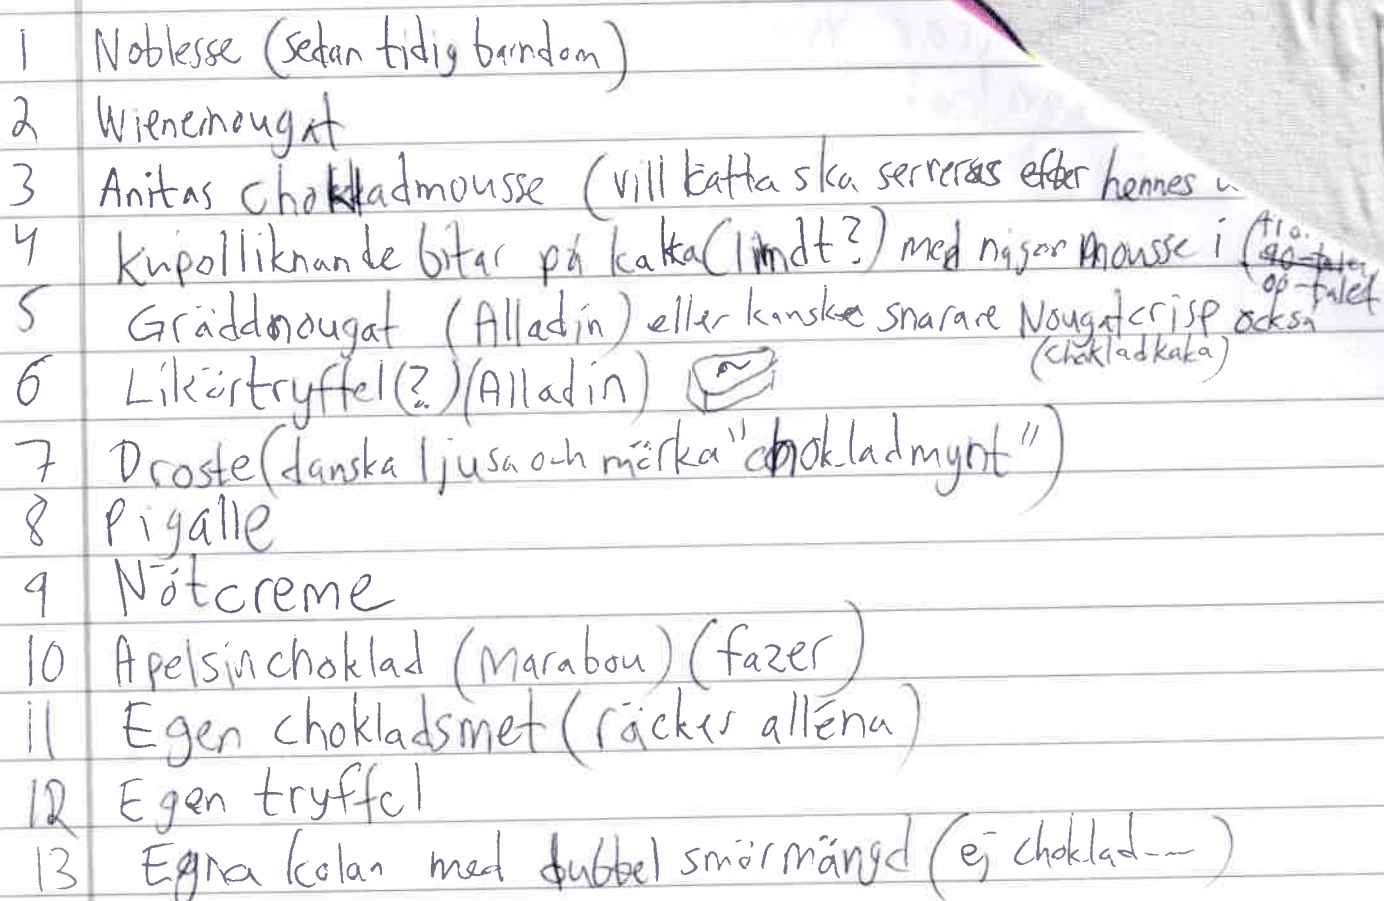 1 Noblesse (sedan tidig barndom)
2 Wienernougat
3 Anitas chokladmousse (vill kätta ska serveras efter hennes
4 kupolliknande bitar på kaka (lindt?) med någon mousse i
00-talet
5 Gräddnougat (Alladin) eller kanske snarare Nougatcrisp också
(chokladkaka)
6 Likörtryffel(?) (Alladin)
7 Droste (danska ljusa och mörka "chokladmynt")
8 Pigalle
9 Nötcreme
10 Apelsinchoklad (Marabou) (fazer)
11 Egen chokladsmet (räcker alléna)
12 Egen tryffel
13 Egna kolan med dubbel smörmängd (ej choklad---)